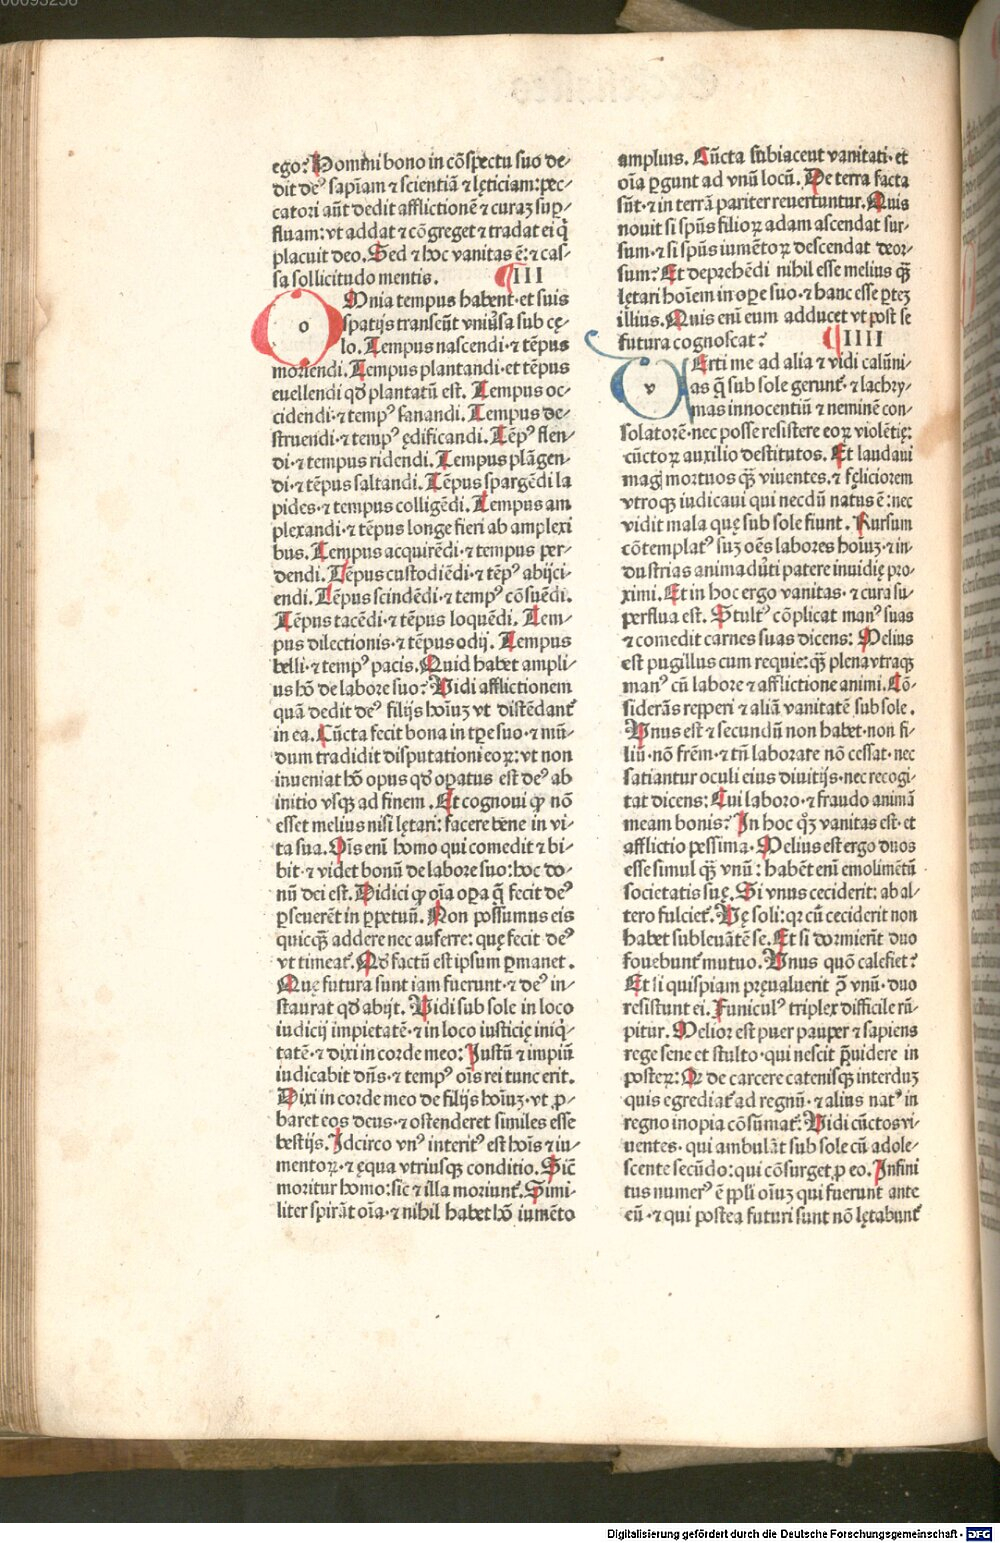 ego? Homini bono in cōspectu suo de⸗
dit deꝰ sapīam ⁊ scientiā ⁊ lęticiam: pec⸗
catori aūt dedit afflictionē ⁊ curaꝫ suꝑ⸗
fluam: vt addat ⁊ cōgreget ⁊ tradat ei q̄
placuit deo. Sed ⁊ hoc vanitas ē: ⁊ cas⸗
sa sollicitudo mentis. ¶III
OMnia tempus habent· et suis
spatijs transeūt vniu̓sa sub cę⸗
lo. Tempus nascendi· ⁊ tēpus
moriendi. Tempus plantandi· et tēpus
euellendi qđ plantatū est. Tempus oc⸗
cidendi· ⁊ tempꝰ sanandi. Tempus de⸗
struendi· ⁊ tempꝰ ędificandi. Tēpꝰ flen⸗
di· ⁊ tempus ridendi. Tempus plāgen⸗
di· ⁊ tēpus saltandi. Tēpus spargēdi la
pides· ⁊ tempus colligēdi. Tempus am
plexandi· ⁊ tēpus longe fieri ab amplexi
bus. Tempus acquirēdi· ⁊ tempus per⸗
dendi. Tēpus custodiēdi· ⁊ tēpꝰ abijci⸗
endi. Tēpus scindēdi· ⁊ tempꝰ cōsuēdi.
Tēpus tacēdi· ⁊ tēpus loquēdi. Tem⸗
pus dilectionis· ⁊ tēpus odij. Tempus
belli· ⁊ tempꝰ pacis. Quid habet ampli⸗
us hō de labore suo? Vidi afflictionem
quā dedit deꝰ filijs hoīuꝫ vt distēdant᷑
in ea. Cūcta fecit bona in tꝑe suo· ⁊ mū⸗
dum tradidit disputationi eoꝝ: vt non
inueniat hō opus qđ oꝑatus est deꝰ ab
initio vsqꝫ ad finem. Et cognoui ꝙ nō
esset melius nisi lętari: facere bene in vi⸗
ta sua. Oīs enī homo qui comedit ⁊ bi⸗
bit· ⁊ videt bonū de labore suo: hoc do⸗
nū dei est. Didici ꝙ oīa oꝑa q̄ fecit deꝰ
ꝑseuerēt in ꝑpetuū. Non possumus eis
quicꝗ̄ addere nec auferre: quę fecit deꝰ
vt timeat᷑. Qđ factū est ipsum ꝑmanet.
Quę futura sunt iam fuerunt· ⁊ deꝰ in⸗
staurat qđ abijt. Vidi sub sole in loco
iudicij impietatē· ⁊ in loco iusticię iniq̇⸗
tatē· ⁊ dixi in corde meo: Justū ⁊ impiū
iudicabit dn̄s· ⁊ tempꝰ oīs rei tunc erit.
Dixi in corde meo de filijs hoīuꝫ· vt ꝓ⸗
baret eos deus· ⁊ ostenderet similes esse
bestijs. Idcirco vnꝰ interitꝰ est hoīs ⁊ iu⸗
mentoꝝ· ⁊ ęqua vtriusqꝫ conditio. Sic̄
moritur homo: sic ⁊ illa moriunt᷑. Simi⸗
liter spirāt oīa· ⁊ nihil habet hō iumēto
amplius. Cūcta subiacent vanitati· et
oīa ꝑgunt ad vnū locū. De terra facta
sūt· ⁊ in terrā pariter reuertuntur. Quis
nouit si spūs filioꝝ adam ascendat sur⸗
sum· ⁊ si spūs iumētoꝝ descendat deor⸗
sum? Et deprehēdi nihil esse melius ꝗ̄
lętari hoīem in oꝑe suo· ⁊ hanc esse ꝑteꝫ
illius. Quis enī eum adducet vt post se
futura cognoscat? ¶IIII
VErti me ad alia ⁊ vidi calūni⸗
as q̄ sub sole gerunt᷑· ⁊ lachry⸗
mas innocentiū ⁊ neminē con⸗
solatorē· nec posse resistere eoꝝ violētię:
cūctoꝝ auxilio destitutos. Et laudaui
magꝭ mortuos ꝗ̄ viuentes. ⁊ fęliciorem
vtroqꝫ iudicaui qui necdū natus ē: nec
vidit mala quę sub sole fiunt. Rursum
cōtemplatꝰ suꝫ oēs labores hoīuꝫ· ⁊ in⸗
dustrias animadu̓ti patere inuidię pro⸗
ximi. Et in hoc ergo vanitas· ⁊ cura su⸗
perflua est. Stultꝰ cōplicat manꝰ suas
⁊ comedit carnes suas dicens: Melius
est pugillus cum requie: ꝗ̄ plena vtraqꝫ
manꝰ cū labore ⁊ afflictione animi. Cō⸗
siderās repperi ⁊ aliā vanitatē sub sole.
Vnus est ⁊ secundū non habet· non fi⸗
liū· nō frēm· ⁊ tn̄ laborare nō cessat· nec
satiantur oculi eius diuitijs· nec recogi⸗
tat dicens: Cui laboro· ⁊ fraudo animā
meam bonis? In hoc qꝫ vanitas est· et
afflictio pessima. Melius est ergo duos
esse simul ꝗ̄ vnū: habēt enī emolimētū
societatis suę. Si vnus ceciderit: ab al⸗
tero fulciet᷑. Vę soli: qꝛ cū ceciderit non
habet subleuātē se. Et si dormierīt duo
fouebunt᷑ mutuo. Vnus quō calefiet?
Et si quispiam pręualuerit ꝯ̄ vnū· duo
resistunt ei. Funiculꝰ triplex difficile rū⸗
pitur. Melior est puer pauper ⁊ sapiens
rege sene et stulto· qui nescit p̄uidere in
posteꝝ: Qꝛ de carcere catenisqꝫ interduꝫ
quis egrediat᷑ ad regnū· ⁊ alius natꝰ in
regno inopia cōsūmat᷑. Vidi cūctos vi⸗
uentes· qui ambulāt sub sole cū adole⸗
scente secūdo: qui cōsurget ꝓ eo. Infini
tus numerꝰ ē pp̄li oīuꝫ qui fuerunt ante
eū· ⁊ qui postea futuri sunt nō lętabunt᷑
Digitalisierung gefördert durch die Deutsche Forschungsgemeinschaft - DFG